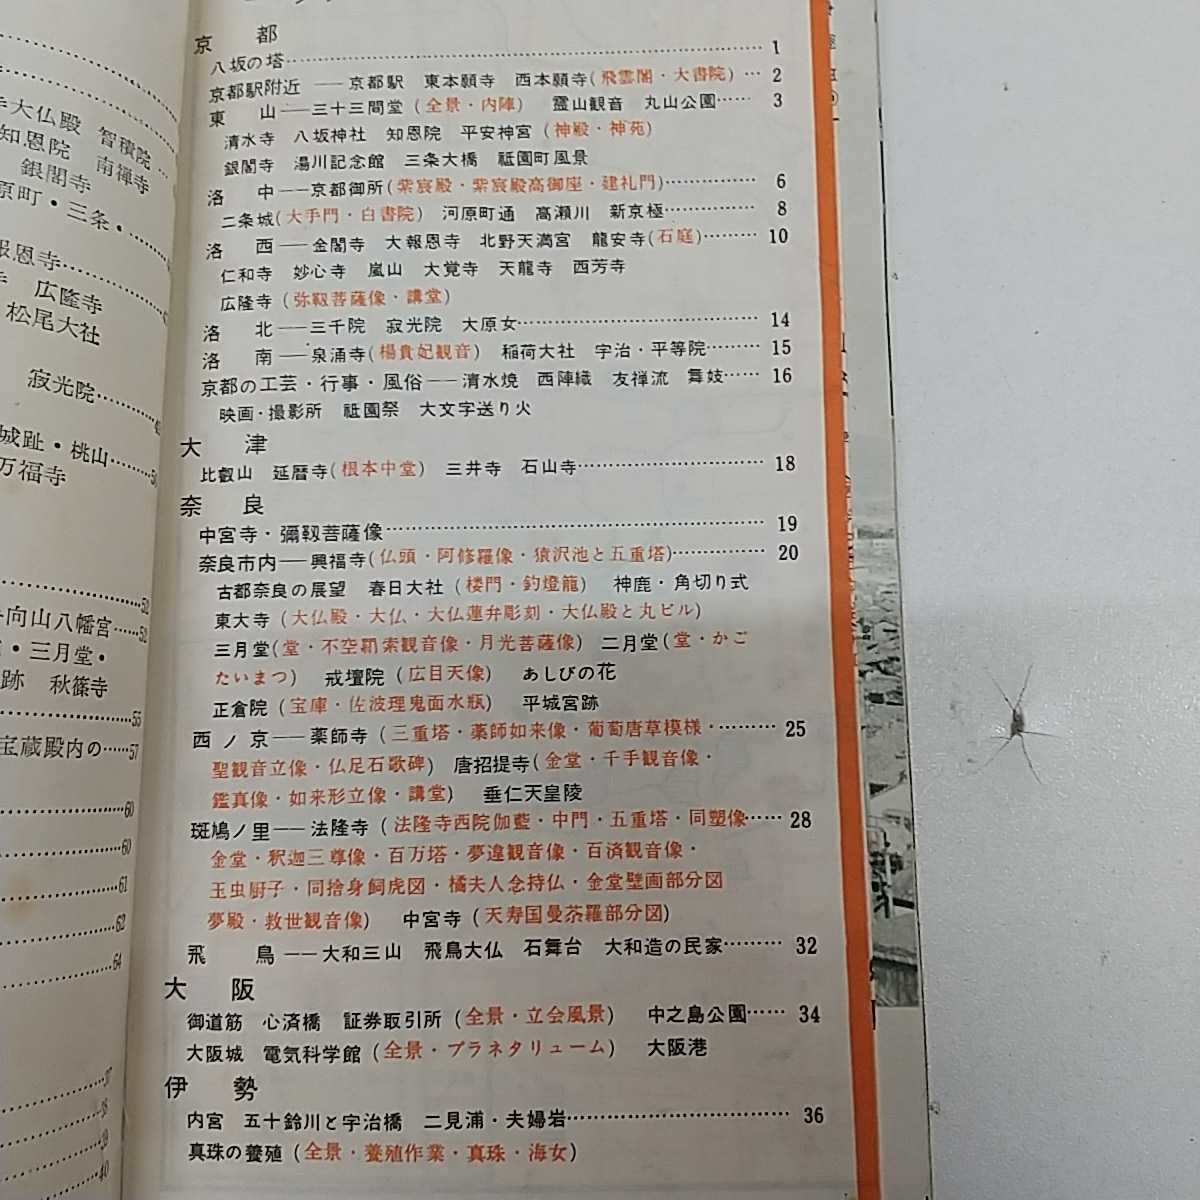 寺大仏殿 智積院…
知恩院 南禅寺
銀閣寺
原町・三条・
報恩寺
広隆寺
松尾大社
寂光院
城趾・桃山………50
万福寺
52
向山八幡宮……52
・三月堂・
跡 秋篠寺
55
宝蔵殿内の……57
60
60
61
62
64
37
38
39
40
京都
八坂の塔………1
京都駅附近——京都駅 東本願寺 西本願寺(飛雲閣・大書院)…2
東山——三十三間堂(全景・内陣) 霊山観音 丸山公園……3
清水寺 八坂神社 知恩院 平安神宮(神殿・神苑)
銀閣寺 湯川記念館 三条大橋 祗園町風景
洛中——京都御所(紫宸殿・紫宸殿高御座・建礼門)………6
二条城(大手門・白書院) 河原町通 高瀬川 新京極………8
洛西——金閣寺 大報恩寺 北野天満宮 龍安寺(石庭)………10
仁和寺 妙心寺 嵐山 大覚寺 天龍寺 西芳寺
広隆寺(弥靱菩薩像・講堂)
洛北——三千院 寂光院 大原女………14
洛南——泉涌寺(楊貴妃観音) 稲荷大社 宇治・平等院………15
京都の工芸・行事・風俗——清水焼 西陣織 友禅流 舞妓……16
映画・撮影所 祗園祭 大文字送り火
大津
比叡山 延暦寺(根本中堂) 三井寺 石山寺………18
奈良
中宮寺・彌靱菩薩像………19
奈良市内——興福寺(仏頭・阿修羅像・猿沢池と五重塔)………20
古都奈良の展望 春日大社(楼門・釣燈籠) 神鹿・角切り式
東大寺(大仏殿・大仏・大仏蓮弁彫刻・大仏殿と丸ビル)
三月堂(堂・不空羂索観音像・月光菩薩像) 二月堂(堂・かご
たいまつ) 戒壇院(広目天像) あしびの花
正倉院(宝庫・佐波理鬼面水瓶) 平城宮跡
西ノ京——薬師寺(三重塔・薬師如来像・葡萄唐草模様・………25
聖観音立像・仏足石歌碑) 唐招提寺(金堂・千手観音像・
鑑真像・如来形立像・講堂) 垂仁天皇陵
斑鳩ノ里——法隆寺(法隆寺西院伽藍・中門・五重塔・同塑像……28
金堂・釈迦三尊像・百万塔・夢違観音像・百済観音像・
玉虫厨子・同捨身飼虎図・橘夫人念持仏・金堂壁画部分図
夢殿・救世観音像) 中宮寺(天寿国曼荼羅部分図)
飛鳥——大和三山 飛鳥大仏 石舞台 大和造の民家………32
大阪
御道筋 心済橋 証券取引所(全景・立会風景) 中之島公園……34
大阪城 電気科学館(全景・プラネタリューム) 大阪港
伊勢
内宮 五十鈴川と宇治橋 二見浦・夫婦岩………36
真珠の養殖(全景・養殖作業・真珠・海女)